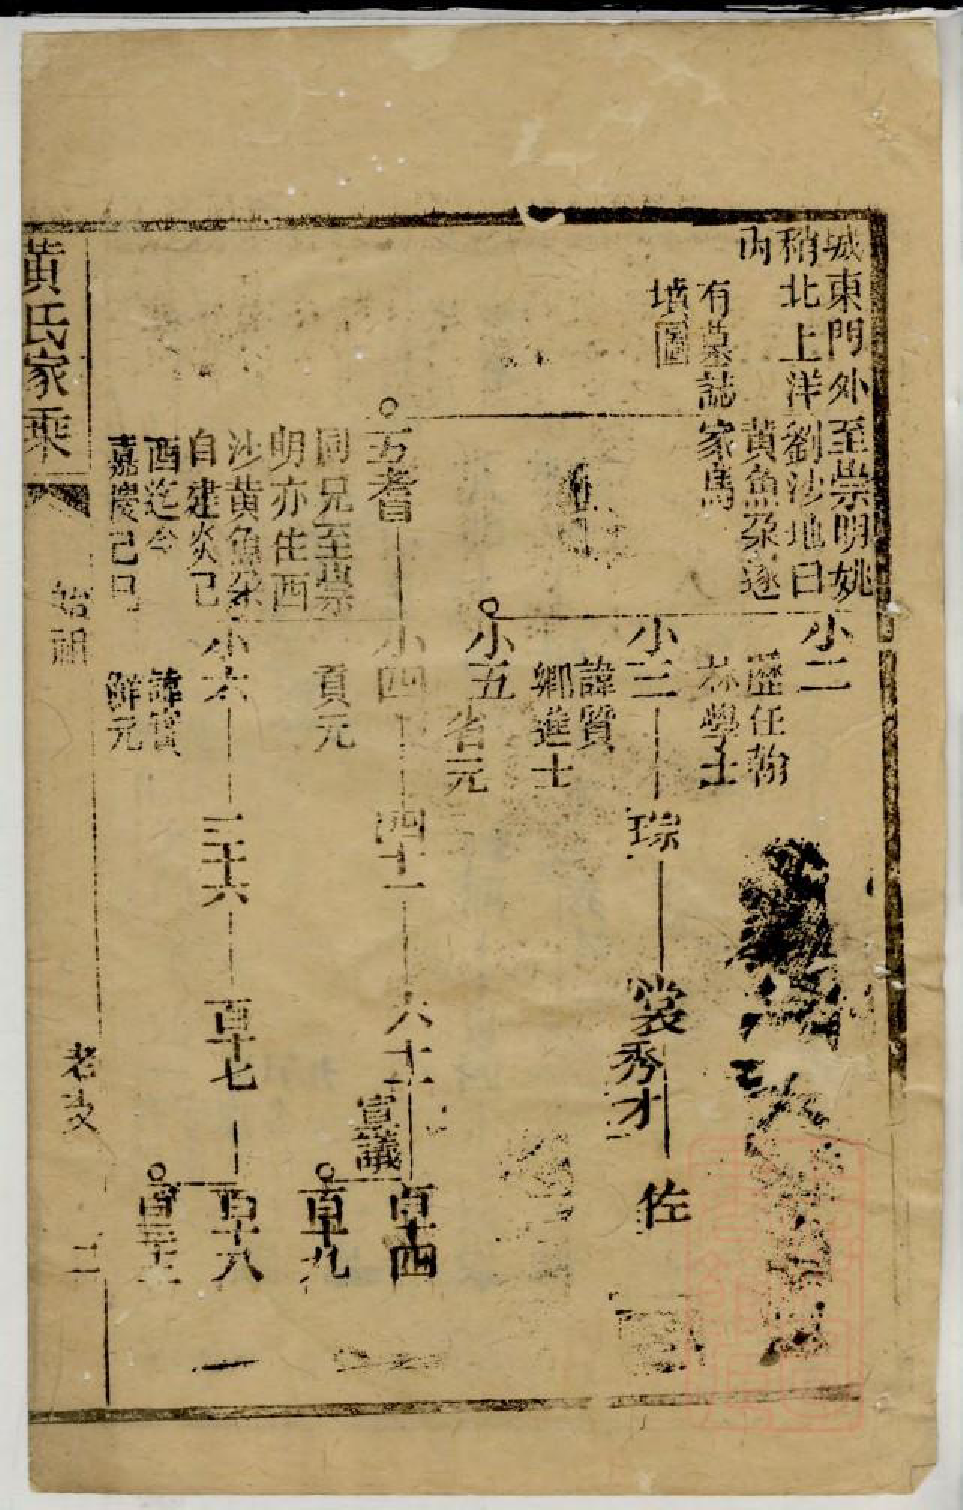 城東門外至崇明姚
稍北上洋劉沙地曰
內
黃魚垜遂
有墓誌家焉
墳圖
小二
歷任翰
林學士
小三
琮
裳
秀才
佐
諱質
鄉進士
小五
省元
五耆
同兄至崇
明亦住西
沙黃魚垜
自建炎己
酉迄今
嘉慶己巳
小四
貢元
四十一
六十
宣議
百十四
百十九
小六
諱賓
解元
三十六
百十七
百十八
黃氏家乘
始祖
老支
二